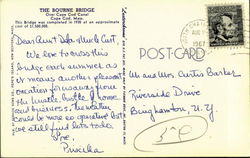 THE BOURNE BRIDGE
Over Cape Cod Canal
Cape Cod, Mass.
This Bridge was completed in 1935 at an approximate
cost of $1,500,000.
Dear Aunt and Uncle Curt,
We love to cross this
bridge each summer as
it means another pleasant
vacation far away from
the hustle, bustle of home
and business. The weather
could be more co-operative but
we still find lots to do.
Love,
Priscilla
POST CARD
AUG
1967
Mr and Mrs Curtis Barker
Riverside Drive
Binghamton N.Y.